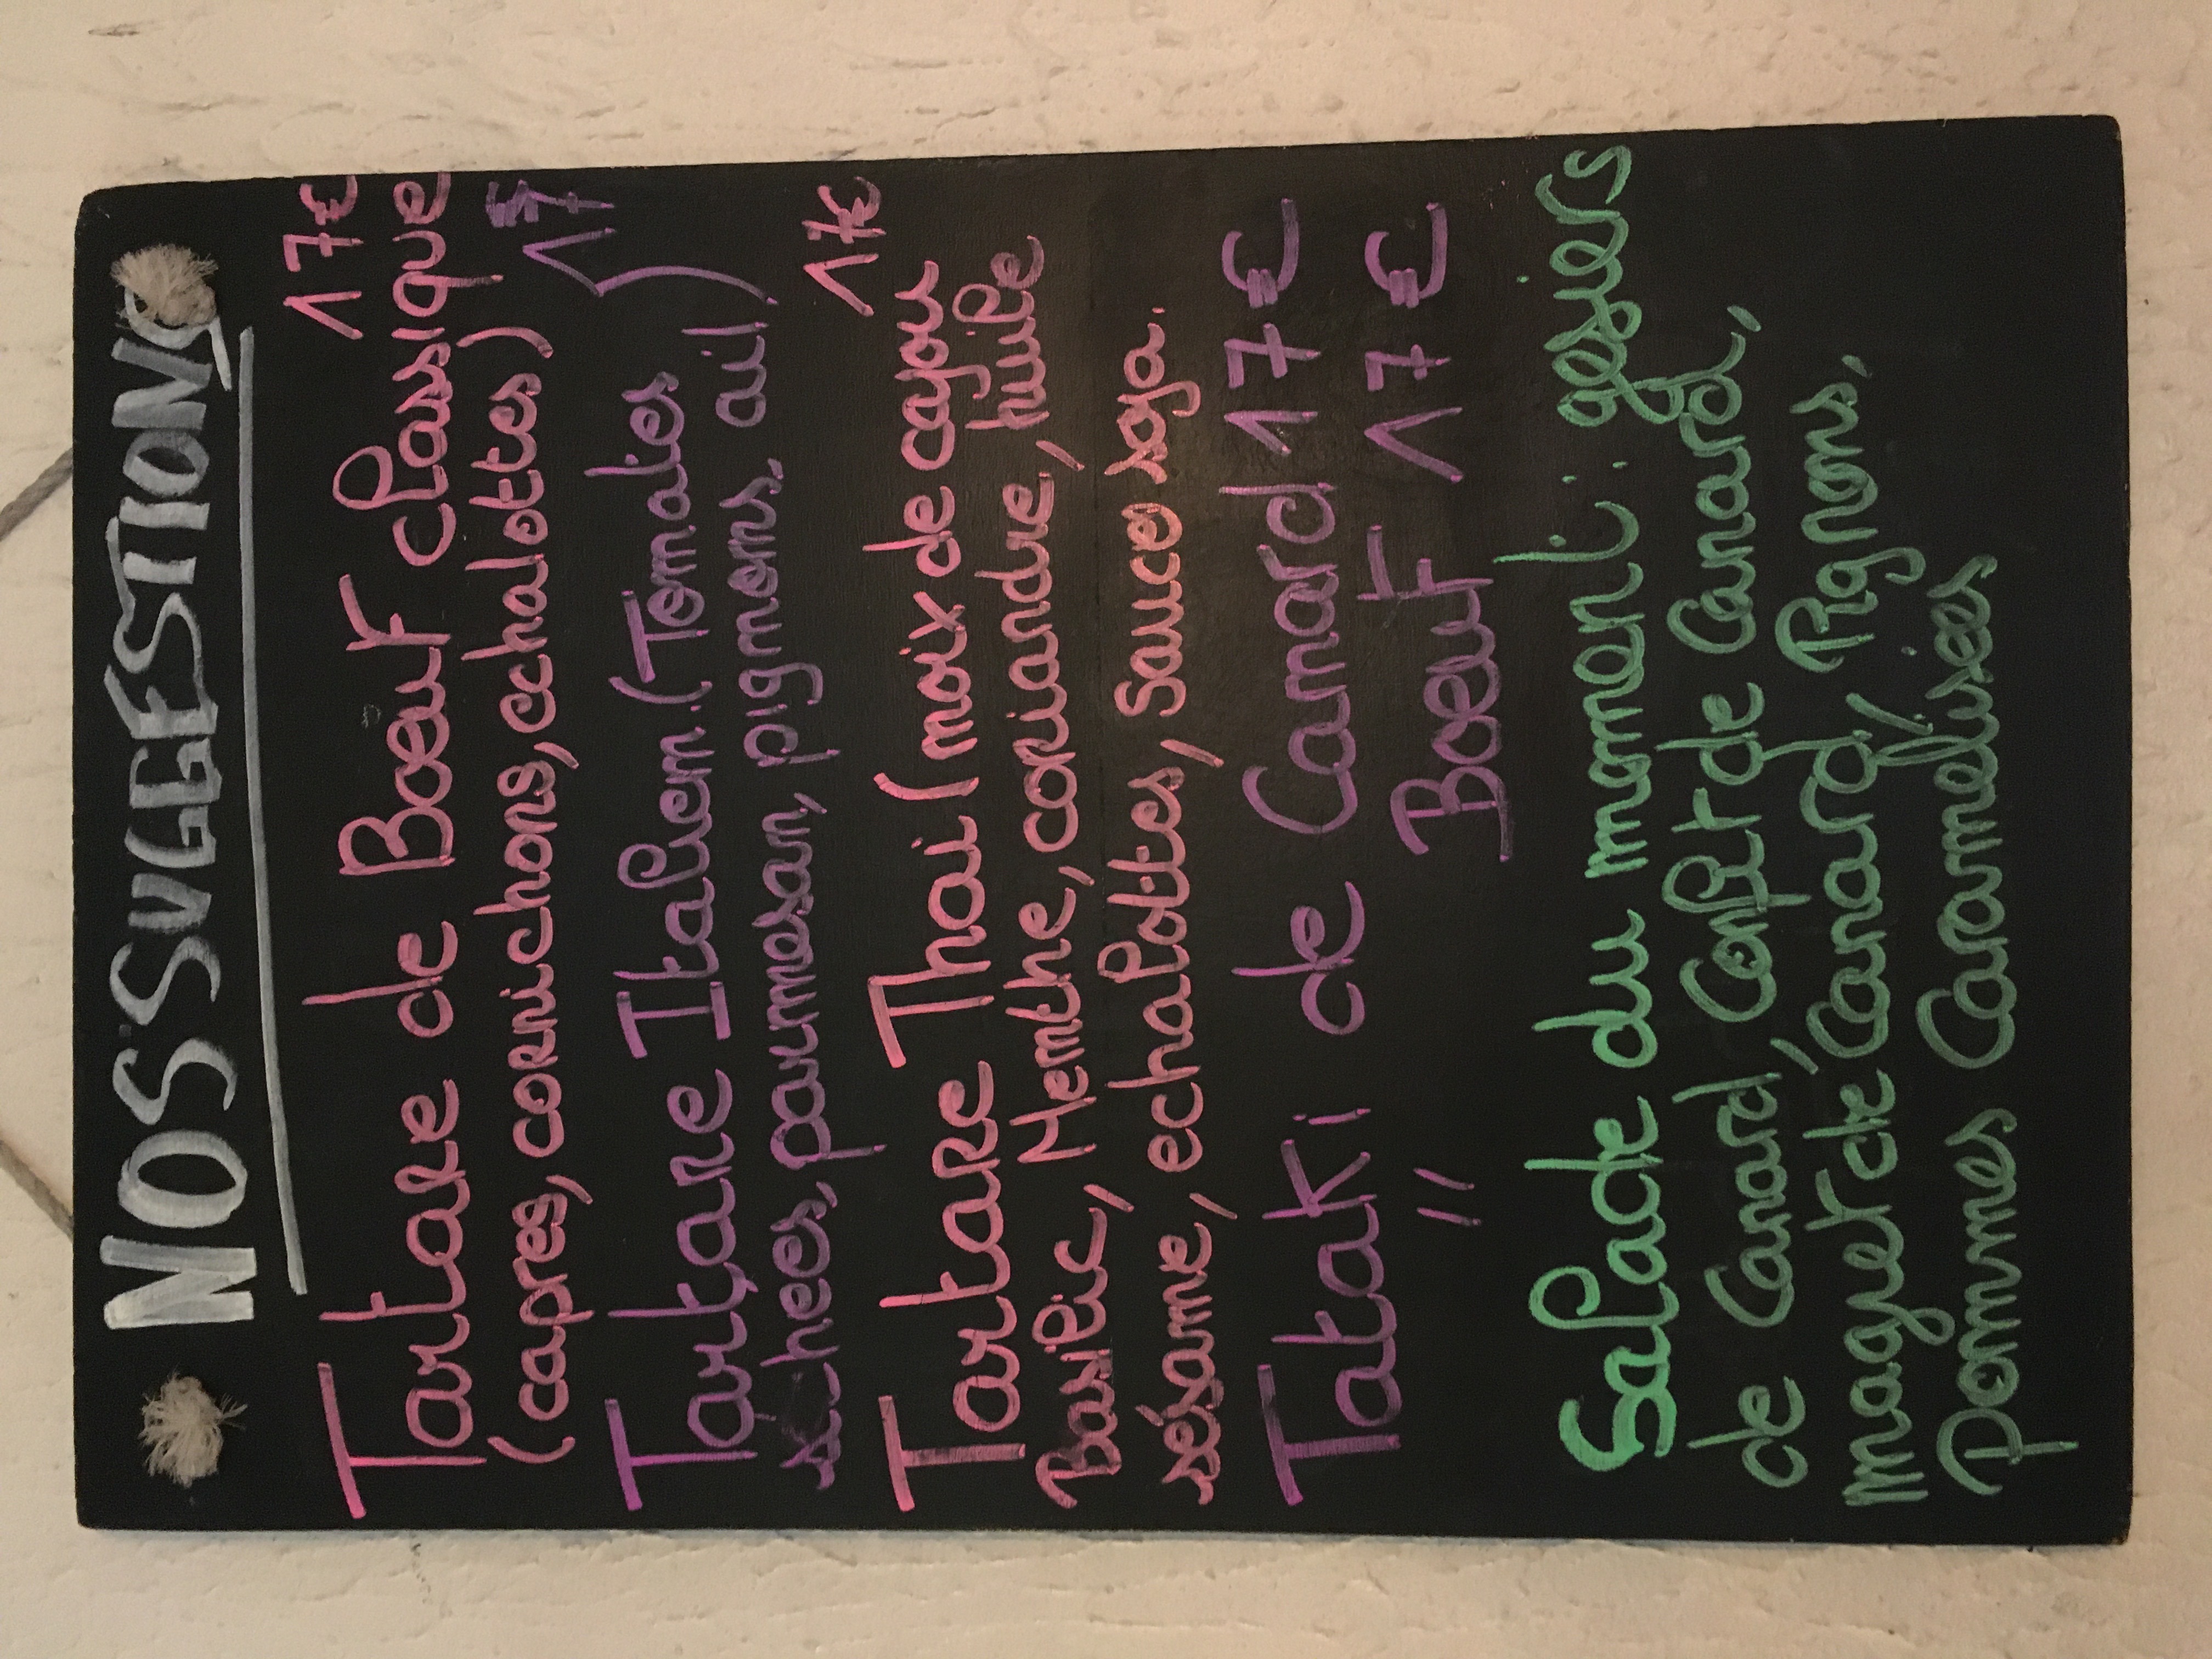 NOS SUGGESTIONS
17€
Tartare de Boeuf classique
(capres, cornichons, echalottes)
17€
Tartare Italien (Tomates
séchees, parmesan, pignons. ail)
17€
Tartare Thai (noix de cajou
Basilic, Menthe, coriandre, huile
sésame, echalottes, Sauce soja.
Tataki de Canard 17€
" Boeuf 17€
Salade du moment : gesiers
de Canard, Confit de Canard,
magret de Canard, Pignons,
pommes Caramélisées